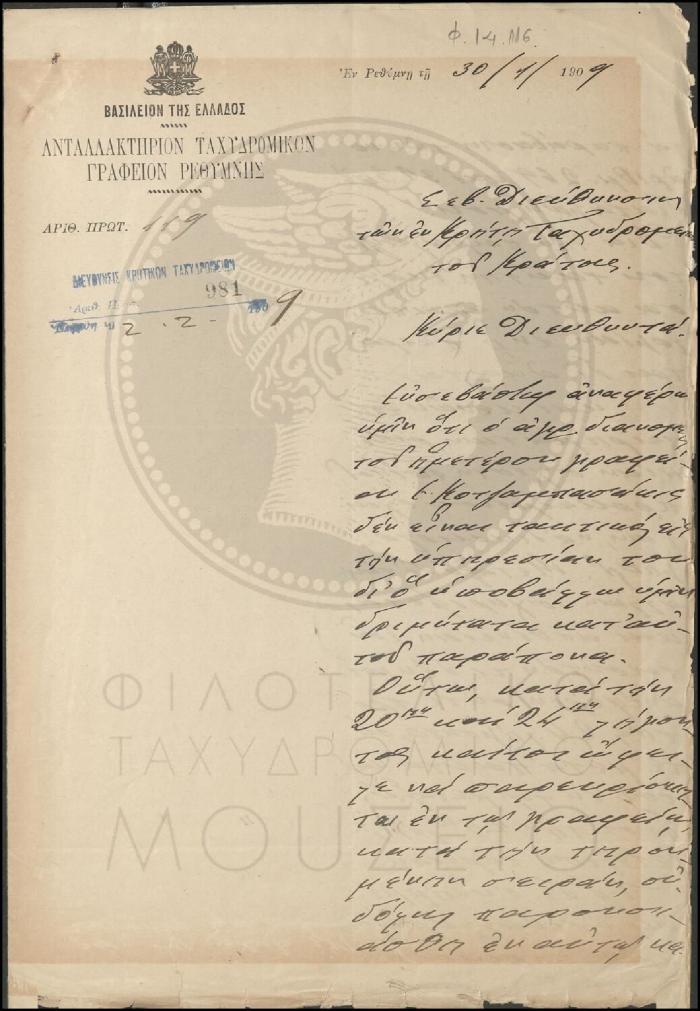 Φ.14.Ν6.
Ἐν Ρεθύμνῃ τῇ 30/1/1909
ΒΑΣΙΛΕΙΟΝ ΤΗΣ ΕΛΛΑΔΟΣ
ΑΝΤΑΛΛΑΚΤΗΡΙΟΝ ΤΑΧΥΔΡΟΜΙΚΟΝ
ΓΡΑΦΕΙΟΝ ΡΕΘΥΜΝΗΣ
ΑΡΙΘ. ΠΡΩΤ. 119
ΔΙΕΥΘΥΝΣΙΣ ΚΡΗΤΙΚΩΝ ΤΑΧΥΔΡΟΜΕΙΩΝ
Ἀριθ. Π 981
2 - 2 - 1909
Σεβ. Διεύθυνσιν
τῶν ἐν Κρήτῃ Ταχυδρομείων
τοῦ Κράτους.
Κύριε Διευθυντά.
Εὐσεβάστως ἀναφέρω
ὑμῖν ὅτι ὁ ἀγρ. διανομεὺς
τοῦ ἡμετέρου γραφεί-
ου Κοτζαμπασάκις
δὲν εἶναι τακτικὸς εἰς
τὴν ὑπηρεσίαν του
δι' ὃ ὑποβάλλω ὑμῖν
δριμύτατα κατ' αὐ-
τοῦ παράπονα.
Οὕτω, κατὰ τὴν
20ην καὶ 24ην
καίτοι ὤφει-
λε νὰ
ἐν τῷ γραφείῳ,
κατὰ τὴν
σειράν, οὐ-
δόλως παρουσι-
άσθη ἐν αὐτῷ κα
ΦΙΛΟΤΕΛΙΚΟ
ΤΑΧΥΔΡΟΜΙΚΟ
ΜΟΥΣΕΙΟ